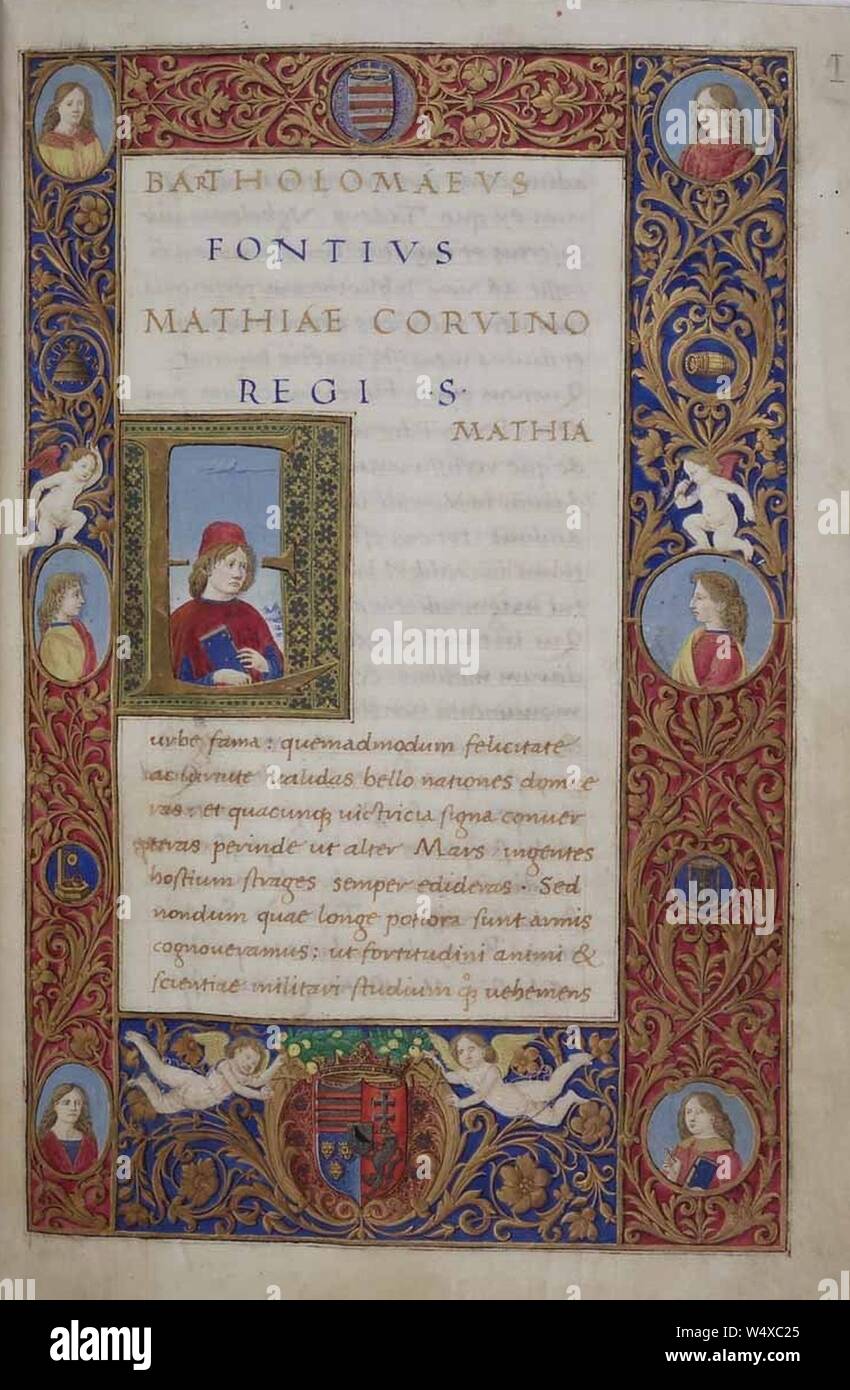 I
BARTHOLOMAEVS
FONTIVS
MATHIAE CORVINO
REGI ·S·
MATHIA
E
urbe fama: quemadmodum felicitate
ac uirtute ualidas bello nationes dom e
ras: et quacunq; uictricia signa conuer
teras perinde ut alter Mars ingentes
hostium strages semper edideras. Sed
nondum quae longe potiora sunt armis
cognoueramus: ut fortitudini animi &
scientiae militari studium q; uehemens
alamy
alamy
Image ID: W4XC25
www.alamy.com